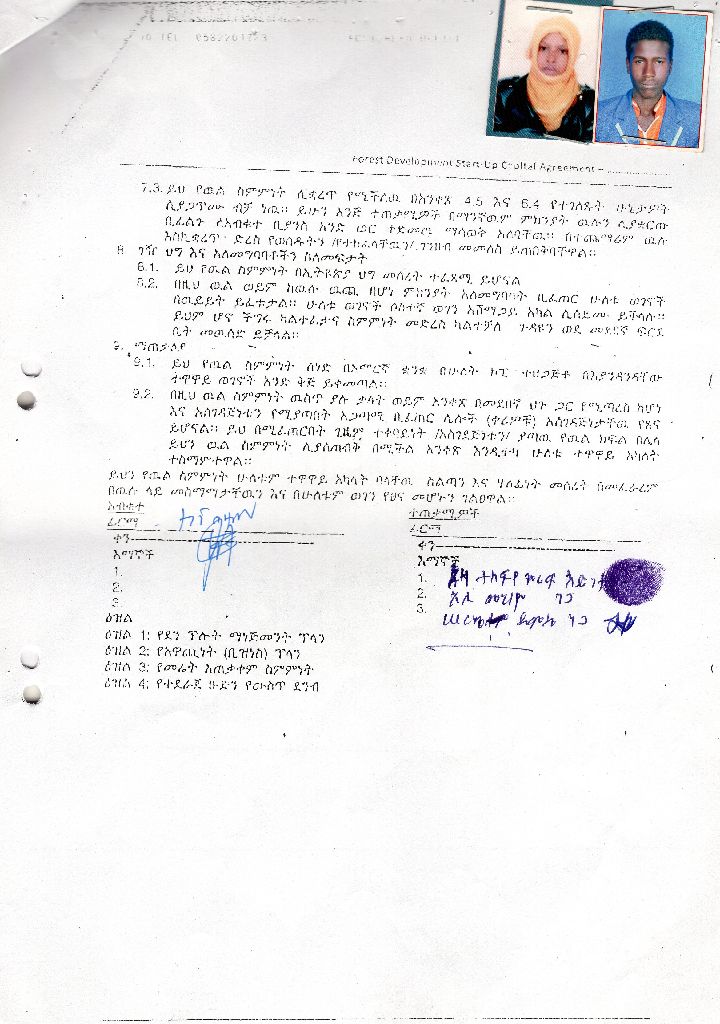 Forest Development Start-Up Capital Agreement –
7.3. ይህ የዉል ስምምነት ሊቋረጥ የሚችለዉ በአንቀጽ 4.5 እና 6.4 የተገለፁት ሁኔታዎች
ሲያጋጥሙ ብቻ ነዉ። ይሁን እንጅ ተጠቃሚዎች በማንኛዉም ምክንያት ዉሉን ሊያቋርጡ
ቢፈልጉ ለአብቁተ ቢያንስ አንድ ወር ቀድመዉ ማሳወቅ አለባቸዉ። በተጨማሪም ዉሉ
እስኪቋረጥ ድረስ የወሰዱትን /የተከፈላቸዉን/ ገንዘብ መመለስ ይጠበቅባቸዋል።
8. ገዥ ህግ እና አለመግባባቶችን ስለመፍታት
8.1. ይህ የዉል ስምምነት በኢትዮጵያ ህግ መሰረት ተፈጻሚ ይሆናል
8.2. በዚህ ዉል ወይም ከዉሉ ዉጪ በሆነ ምክንያት አለመግባባት ቢፈጠር ሁለቱ ወገኖች
በዉይይት ይፈቱታል። ሁለቱ ወገኖች ሶስተኛ ወገን አሸማጋይ አካል ሊሰይሙ ይችላሉ።
ይህም ሆኖ ችግሩ ካልተፈታና ስምምነት መድረስ ካልተቻለ ጉዳዩን ወደ መደበኛ ፍርድ
ቤት መዉሰድ ይቻላል።
9. ማጠቃለያ
9.1. ይህ የዉል ስምምነት ሰነድ በአማርኛ ቋንቋ በሁለት ኮፒ ተዘጋጅቶ በእያንዳንዳቸው
ተዋዋይ ወገኖች አንድ ቅጅ ይቀመጣል።
9.2. በዚህ ዉል ስምምነት ዉስጥ ያሉ ቃላት ወይም አንቀጽ በመደበኛ ህጉ ጋር የሚጣረስ ከሆነ
እና አስገዳጅነቱን የሚያጣበት አጋጣሚ ቢፈጠር ሌሎች (ቀሪዎቹ) አስገዳጅነታቸዉ የጸና
ይሆናል። ይህ በሚፈጠርበት ጊዜም ተቀባይነት /አስገዳጅነቱን/ ያጣዉ የዉል ክፍል በሌላ
ይህን ዉል ስምምነት ሊያስጠብቅ በሚችል አንቀጽ እንዲተካ ሁለቱ ተዋዋይ አካላት
ተስማምተዋል።
ይህን የዉል ስምምነት ሁለቱም ተዋዋይ አካላት ባላቸዉ ስልጣን እና ሃላፊነት መሰረት በመፈራረም
በዉሉ ላይ መስማማታቸዉን እና በሁለቱም ወገን የፀና መሆኑን ገልፀዋል።
አብቁተ
ፊርማ
ቀን
እማኞች
1.
2.
3.
ተጠቃሚዎች
ፊርማ
ቀን
እማኞች
1.
2. አሊ
3.
ዕዝል
ዕዝል 1: የደን ፕሎት ማኔጅመንት ፕላን
ዕዝል 2: የአዋጪነት (ቢዝነስ) ፕላን
ዕዝል 3: የመሬት አጠቃቀም ስምምነት
ዕዝል 4: የተደራጀ ቡድን የውስጥ ደንብ